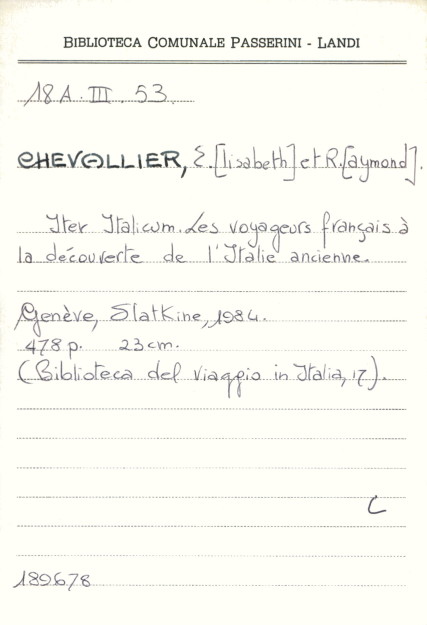 BIBLIOTECA COMUNALE PASSERINI - LANDI
18 A. III. 53.
CHEVALLIER, E.[lisabeth] et R.[aymond].
Iter Italicum. Les voyageurs français à
la découverte de l'Italie ancienne.
Genève, Slatkine, 1984.
478 p. 23 cm.
(Biblioteca del viaggio in Italia, 17).
C
189678